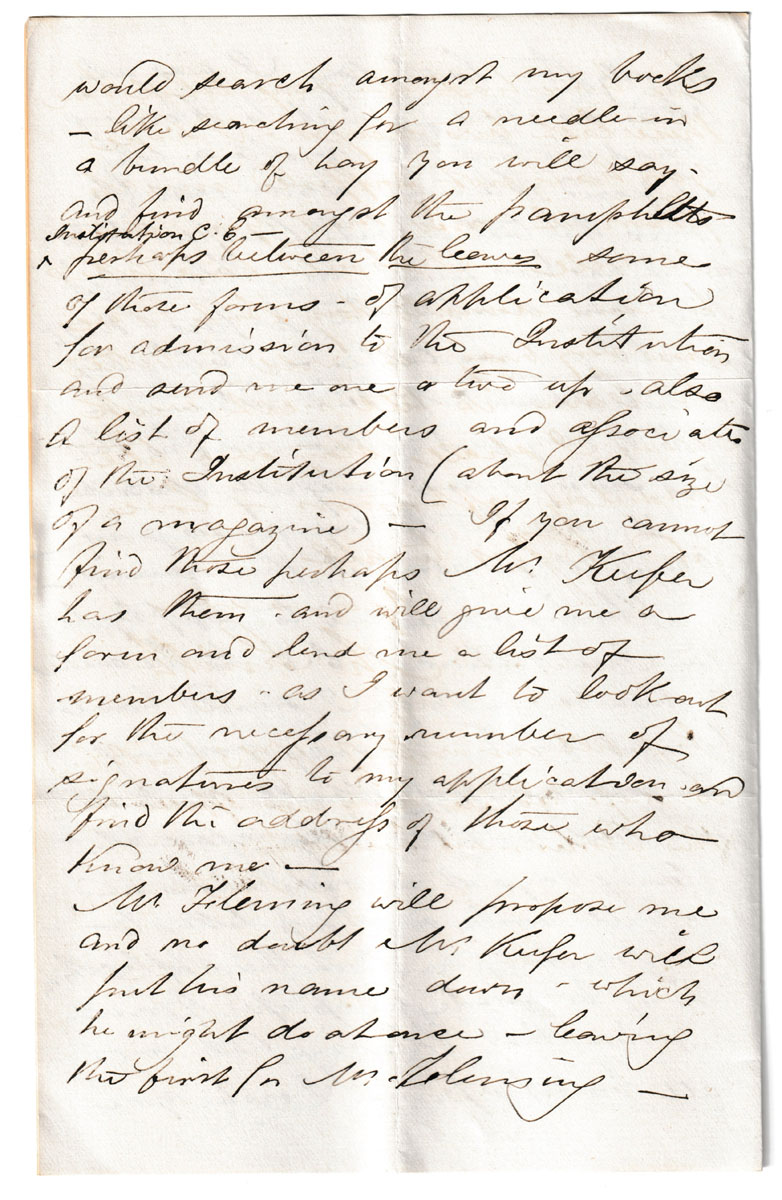 would search amongst my books
- like searching for a needle in
a bundle of hay you will say -
and find amongst the pamphlets
Institution C. E -
^ perhaps between the leaves some
of those forms - of application
for admission to the Institution
and send me one or two up - also
a list of members and associates
of the Institution (about the size
of a magazine) - If you cannot
find those perhaps Mr. Keefer
has them - and will give me a
form and lend me a list of
members - as I want to look out
for the necessary number of
signatures to my application and
find the address of those who
know me -
Mr. Fleming will propose me
and no doubt Mr. Keefer will
put his name down - which
he might do at once - leaving
the first for Mr. Fleming -